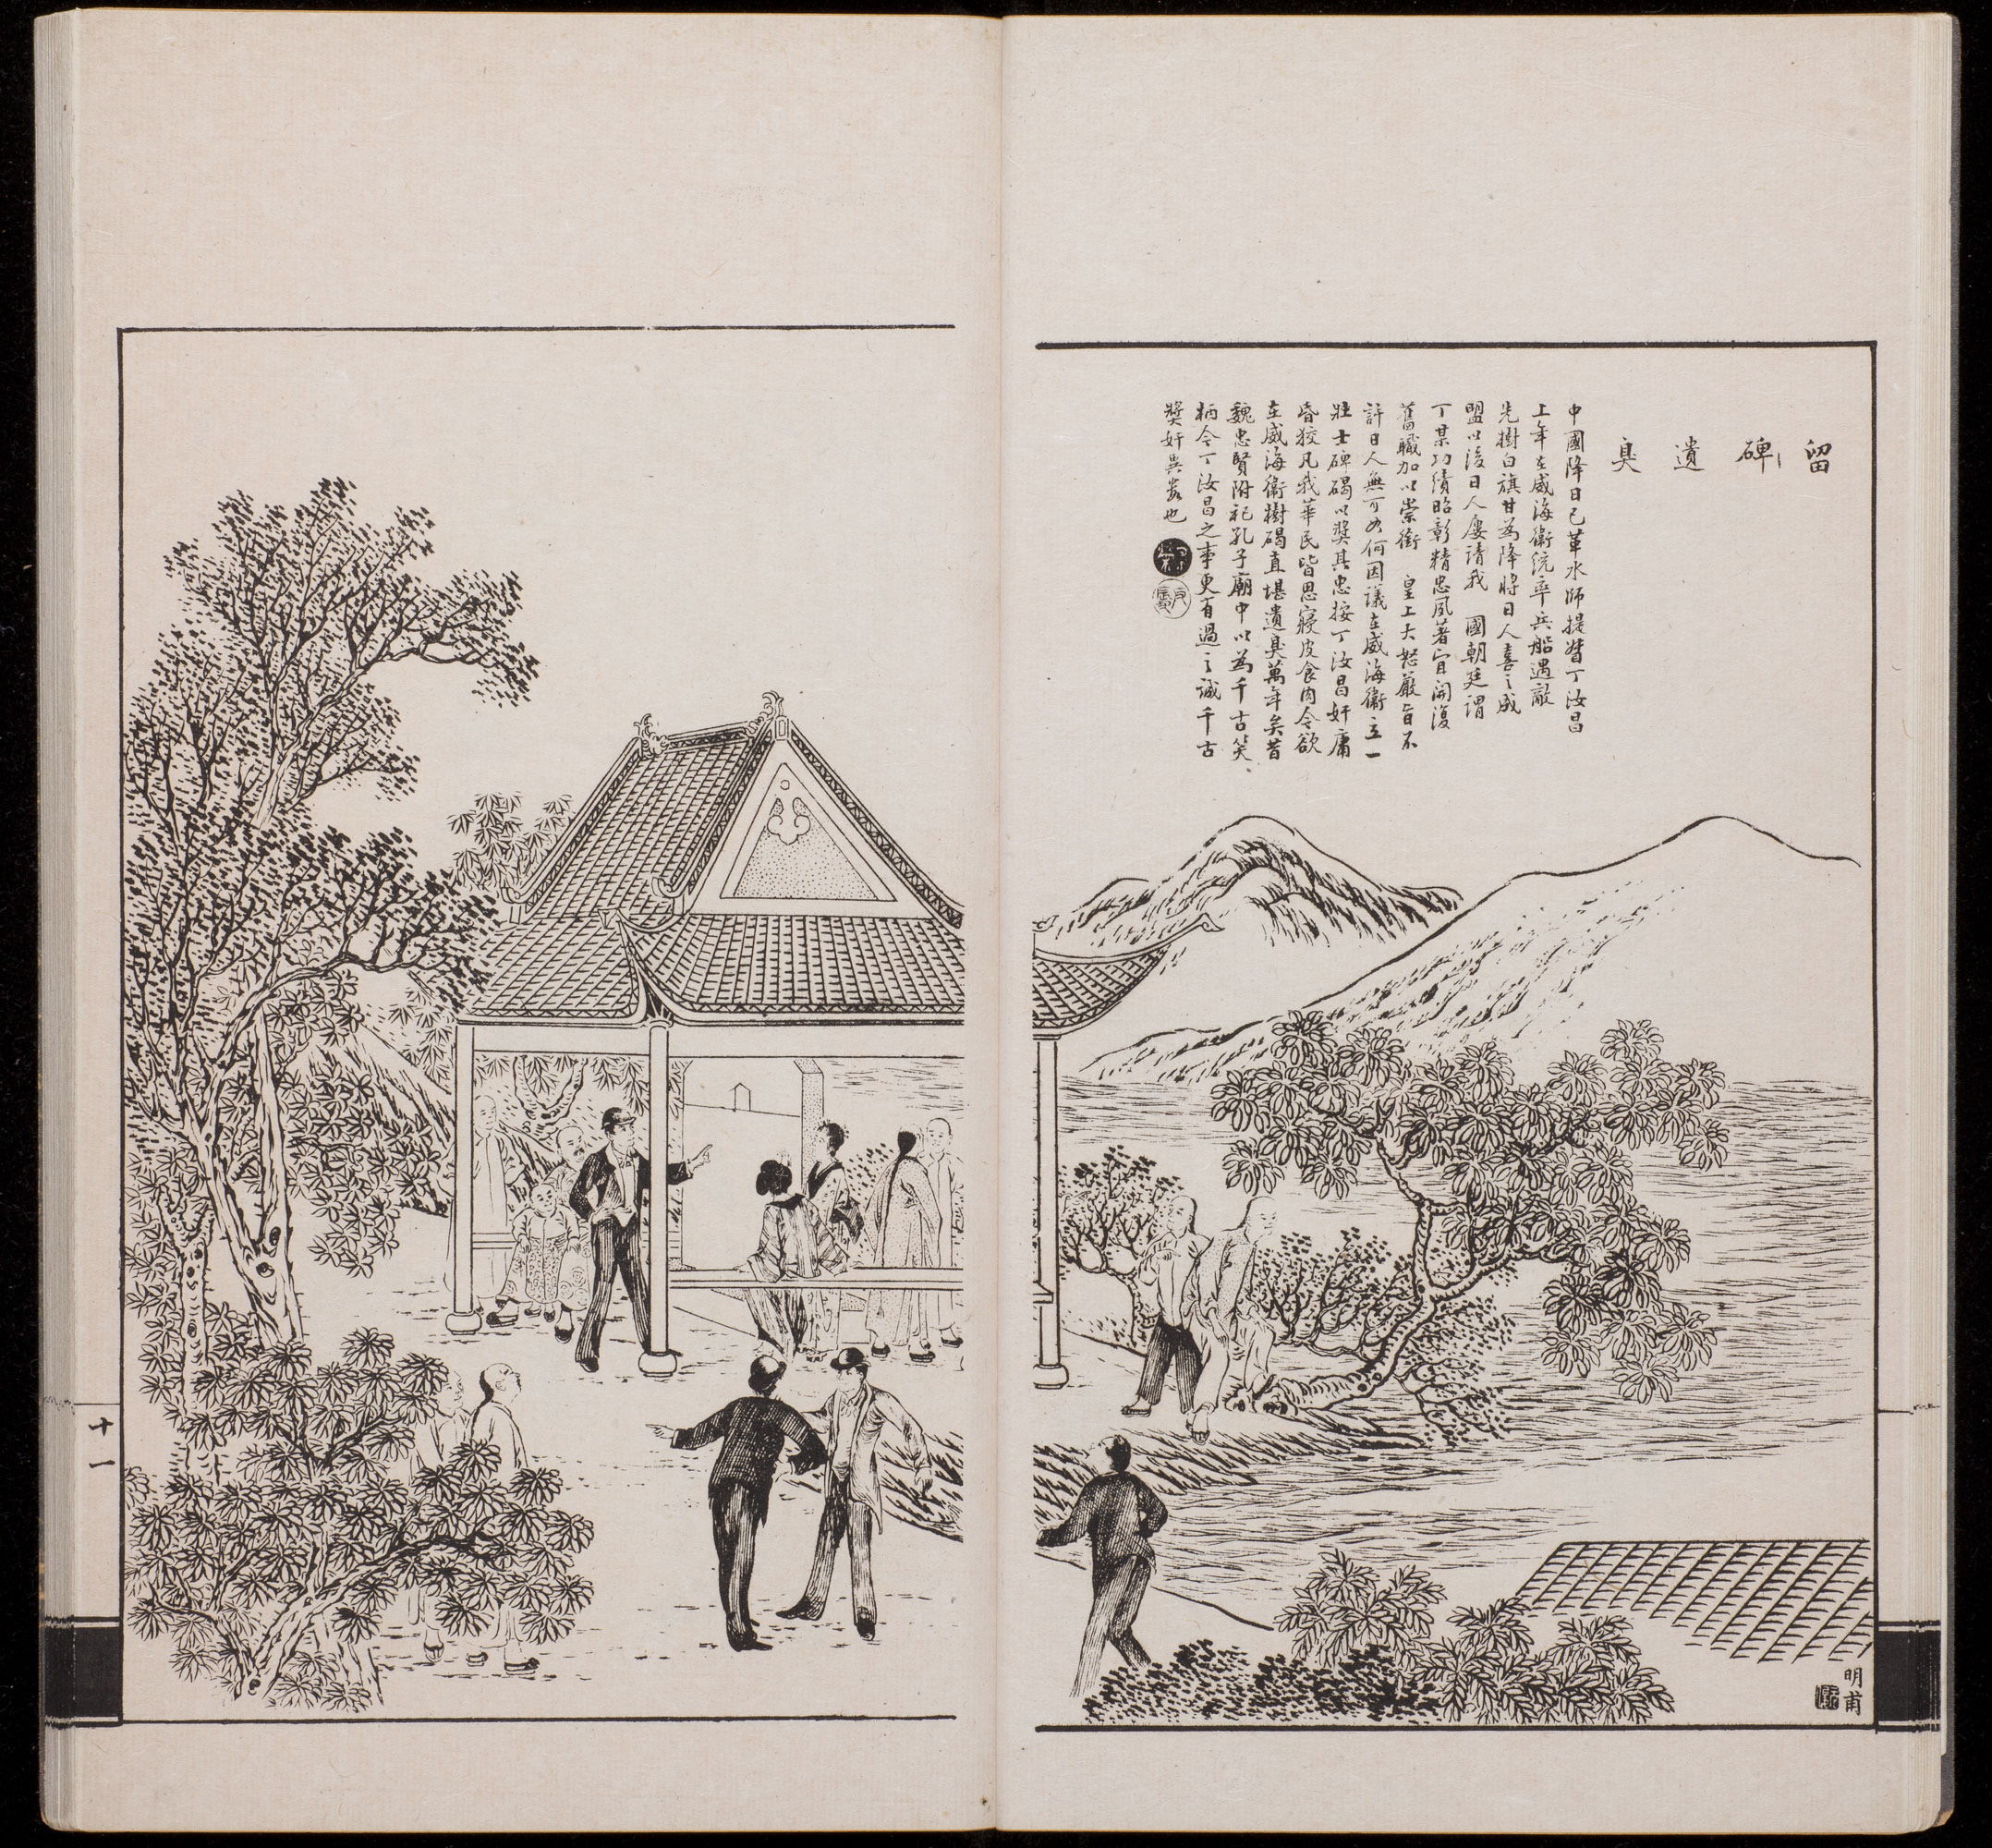 留碑遺臭
中國降日已革水師提督丁汝昌
上年在威海衛統率兵船遇敵
先樹白旗甘為降將日人喜之成
盟以後日人屢請我 國朝廷謂
丁某功績昭彰精忠夙著宜開復
舊職加以崇銜 皇上大怒嚴旨不
許日人無可如何因議在威海衛立一
壯士碑碣以獎其忠按丁汝昌奸庸
昏狡凡我華民皆思寢皮食肉今欲
在威海衛樹碣直堪遺臭萬年矣昔
魏忠賢附祀孔子廟中以為千古笑
柄今丁汝昌之事更有過之誠千古
獎奸異數也
明甫
十一